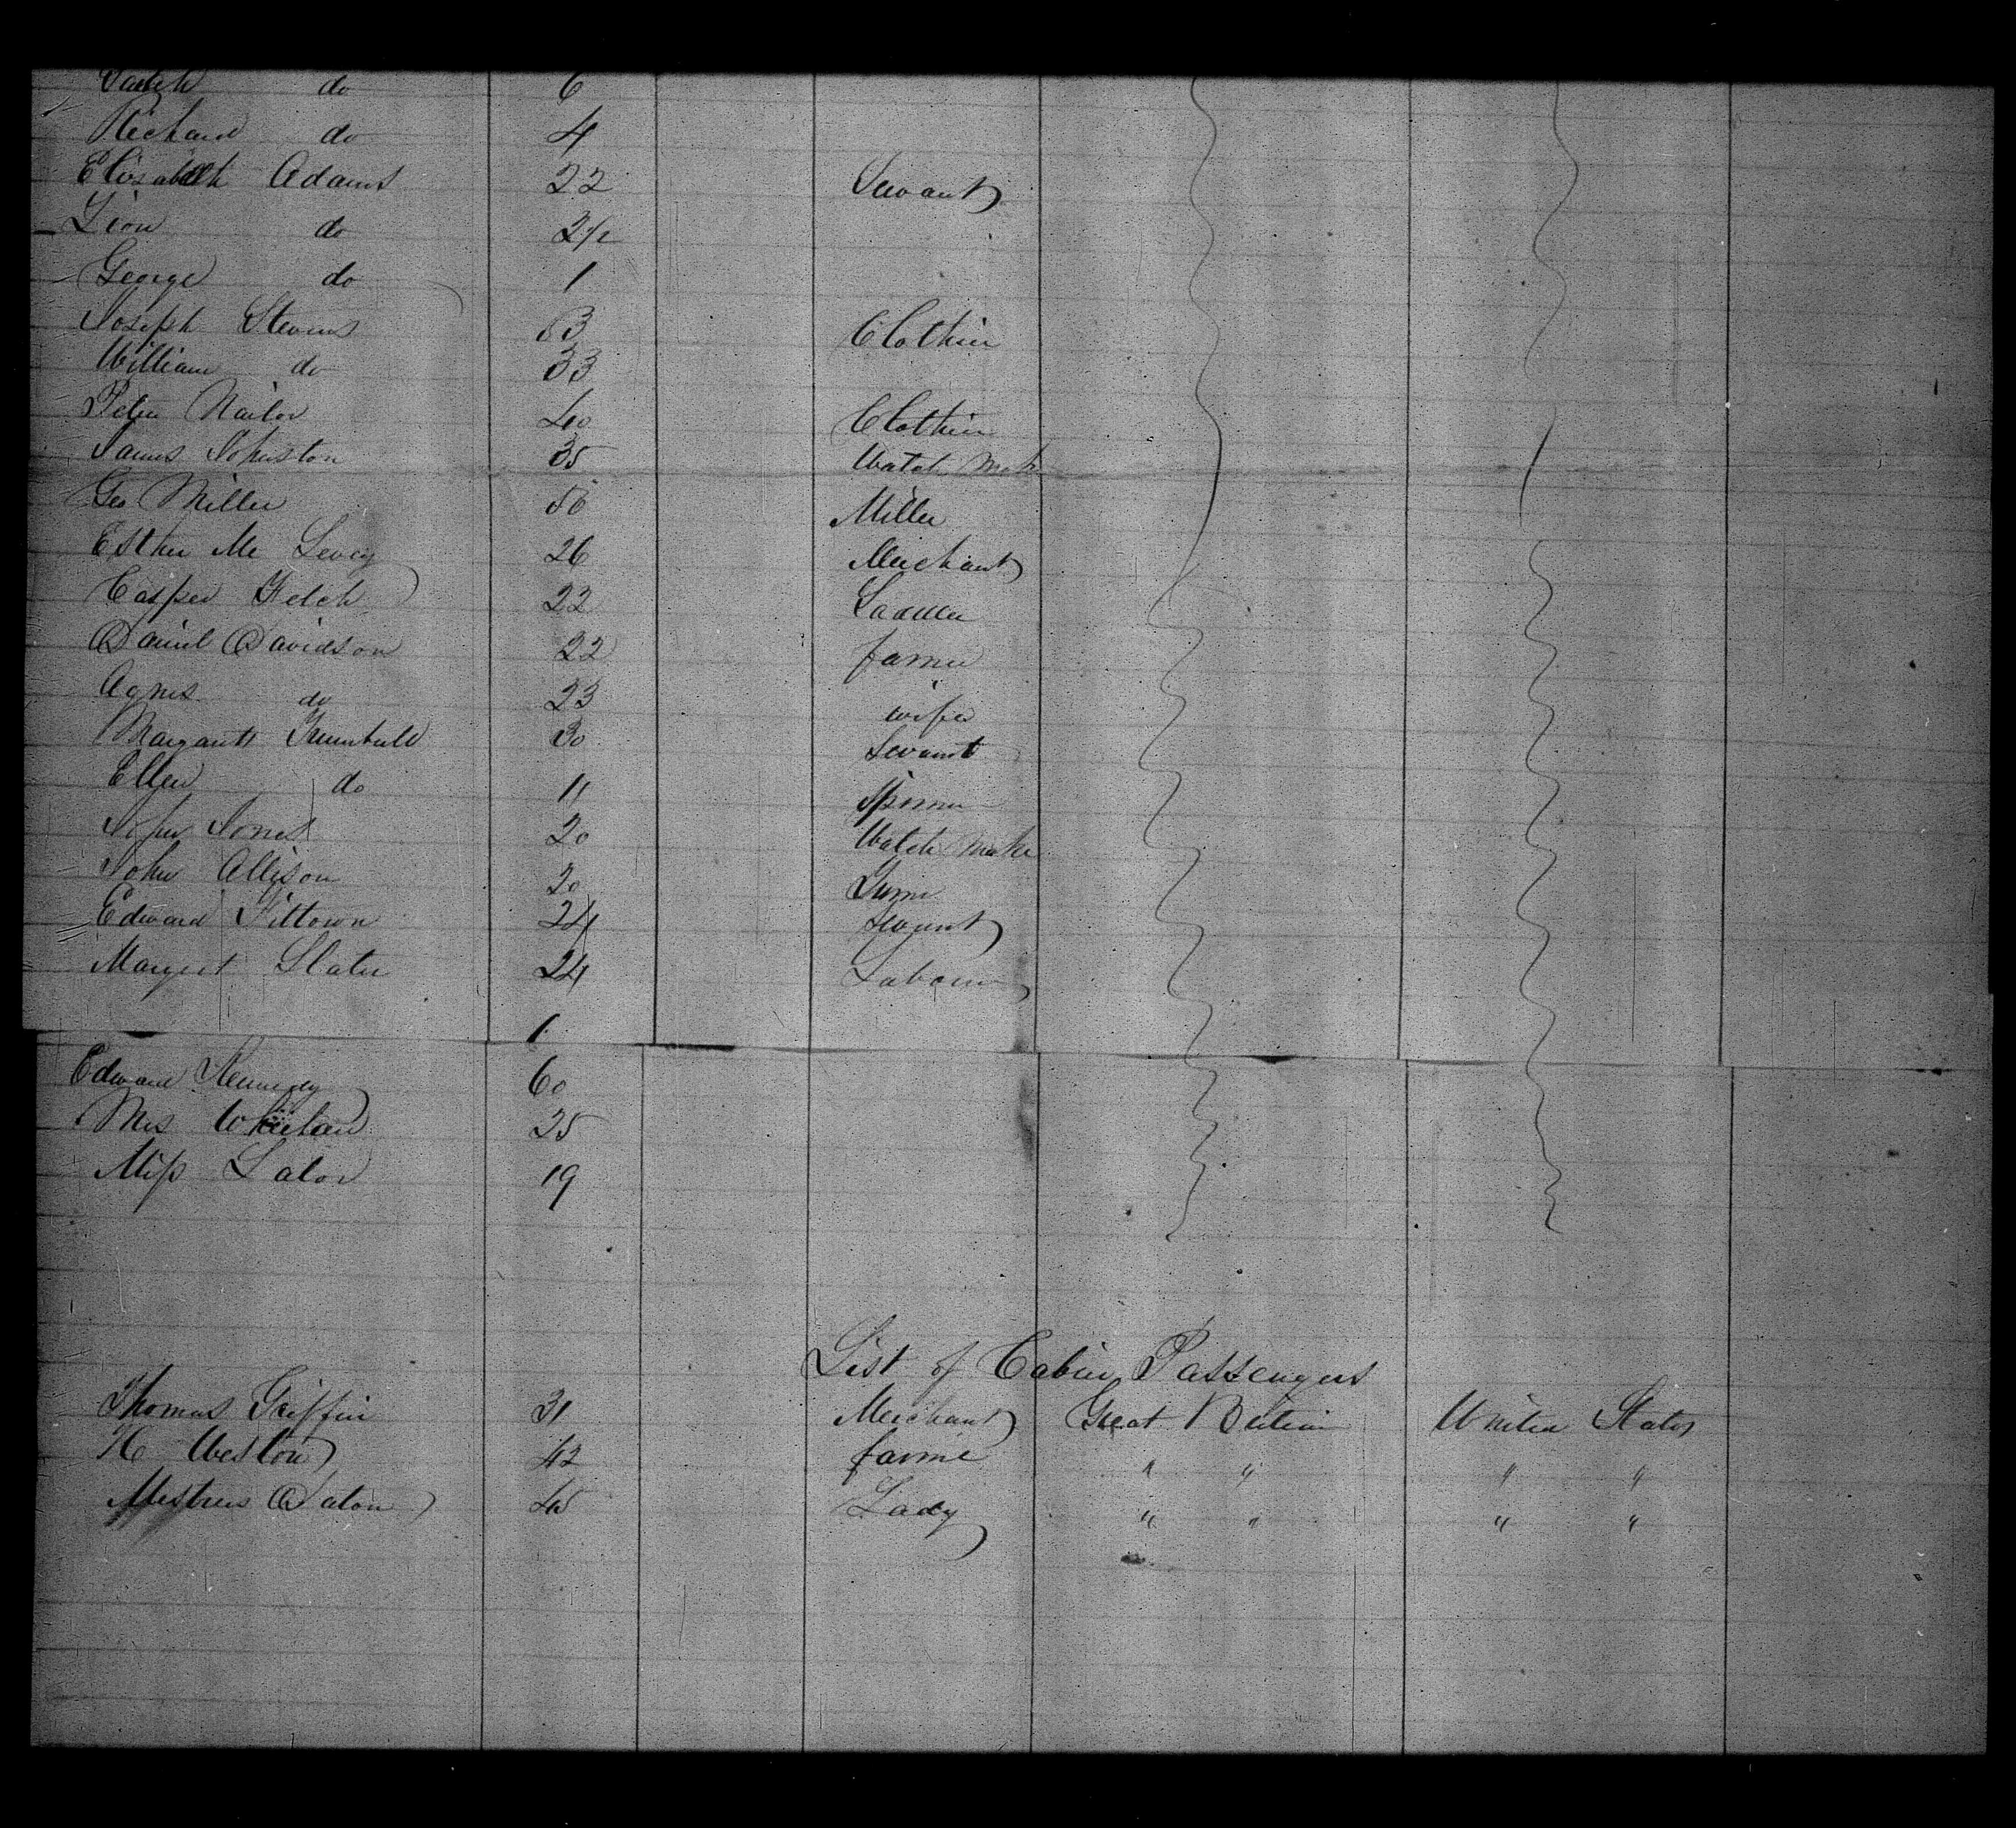 Sarah do 6
Richard do 4
Elisabeth Adams 22 Servant
Lion do 2 1/2
George do 1
Joseph Stevens 53 Clothier
William do 33
Peter Nailor 40 Clothier
James Johnston 35 Watch Mak
Geo Miller 56 Miller
Esther Mc Levey 26 Merchant
Casper 22 Saddler
Daniel Davidson 22 farmer
Agnes do 23 wife
Margarett Trumbull 30 Servant
Ellen do 11
Jones 20 Watch Maker
John Allison 20
Edward Tittown 24 Servant
Margret Slater 24 Labourer
1
Edward Kennedy 60
Mrs Whelan 25
Miss Lalor 19
List of Cabin Passengers
Thomas Griffin 31 Merchant Great Britain United States
H Weston 42 farme " " " "
Mistress Dalon 45 Lady " " " "